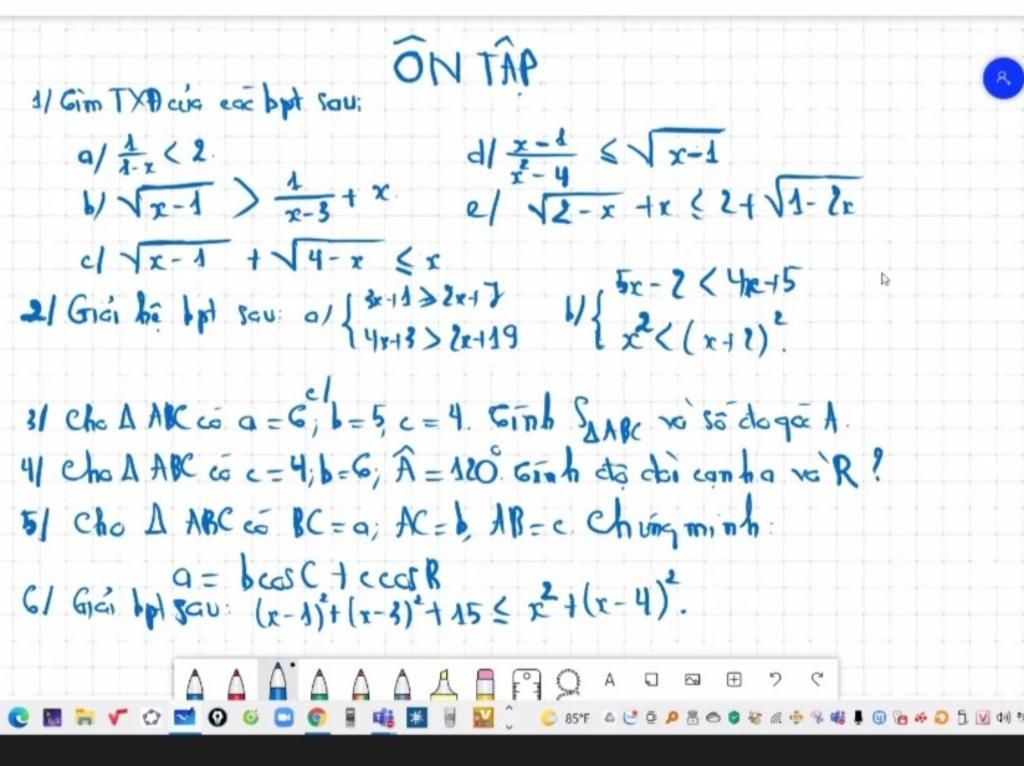 ÔN TẬP
1/ Tìm TXĐ của các bpt sau:
a/ 1/(1-x) < 2.
d/ (x-1)/(x²-4) ≤ √(x-1)
b/ √(x-1) > 1/(x-3) + x.
e/ √(2-x) + x ≤ 2 + √(1-2x)
c/ √(x-1) + √(4-x) ≤ x
2/ Giải hệ bpt sau: a/ { 3x+1 ≥ 2x+7
4x+3 > 2x+19
b/ { 5x-2 < 4x+5
x² < (x+2)².
c/
3/ Cho Δ ABC có a = 6; b = 5, c = 4. Tính SΔABC và số đo góc A.
4/ Cho Δ ABC có c = 4; b = 6; Â = 120°. Tính độ dài cạnh a và R?
5/ Cho Δ ABC có BC = a; AC = b, AB = c. Chứng minh:
a = bcosC + ccosB
6/ Giải bpt sau: (x-1)² + (x-3)² + 15 ≤ x² + (x-4)².
A
85°F